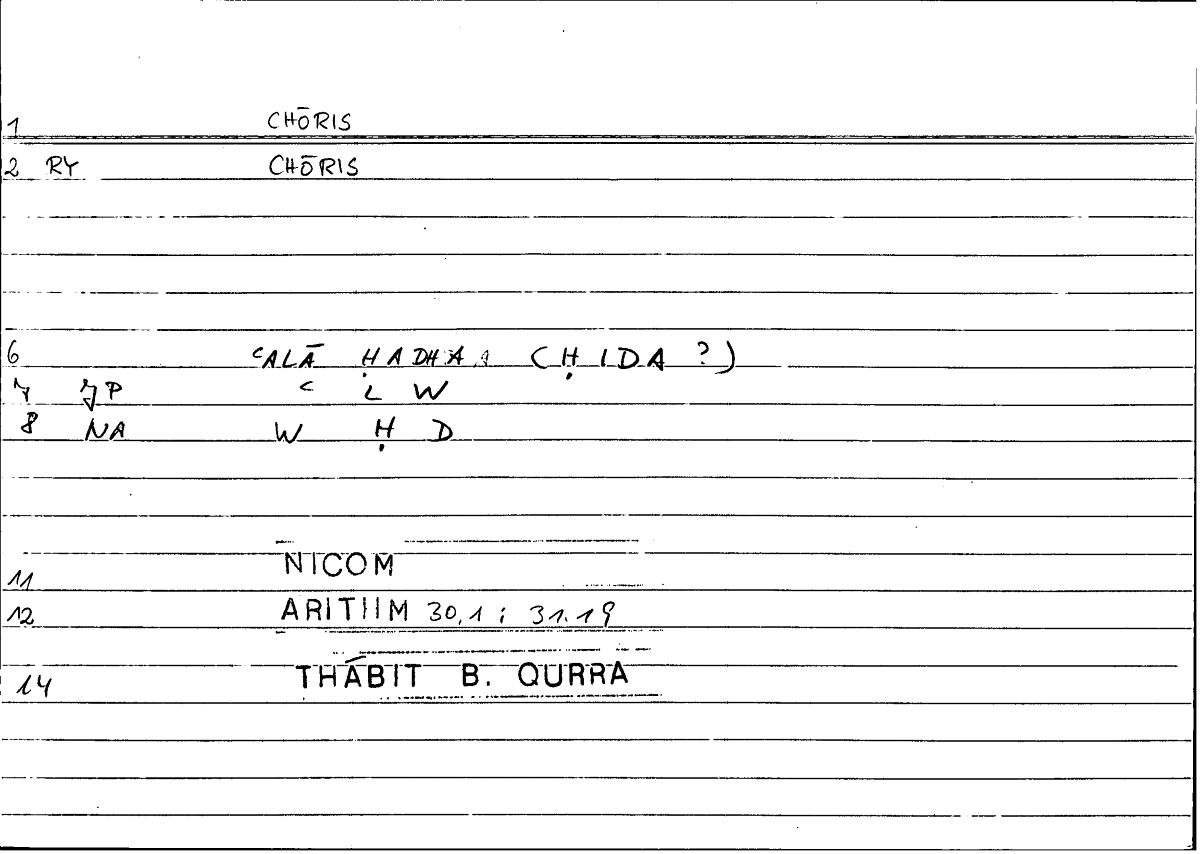 1 CHŌRIS
2 RY CHŌRIS
6 ᶜALĀ ḤADHA (ḤIDA ?)
7 JP ᶜ L W
8 NA W Ḥ D
11 NICOM
12 ARITIIM 30,1 ; 31.19
14 THĀBIT B. QURRA